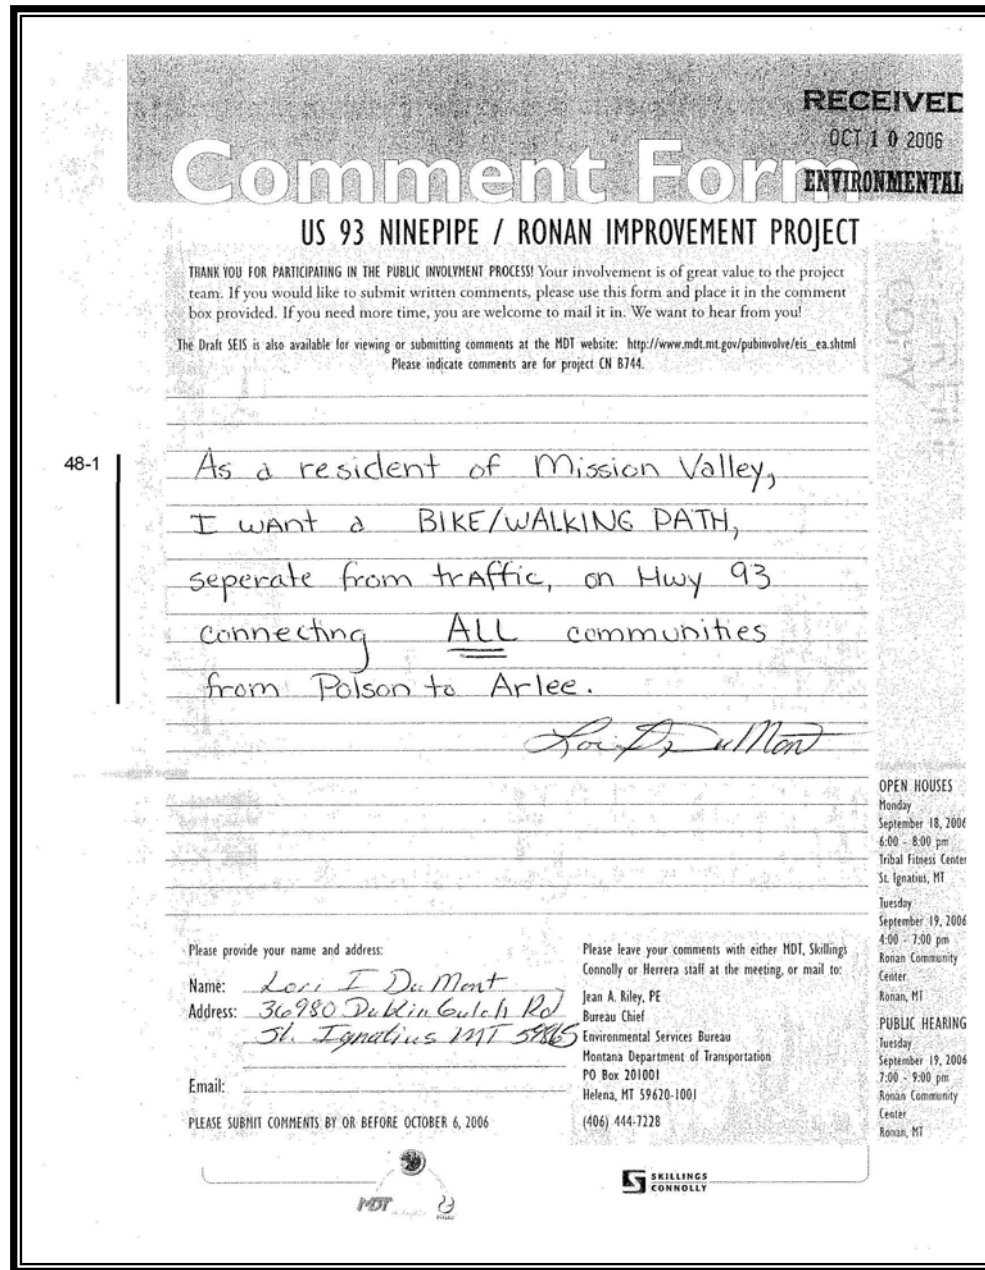 RECEIVED
OCT 10 2006
ENVIRONMENTAL
Comment Form
US 93 NINEPIPE / RONAN IMPROVEMENT PROJECT
THANK YOU FOR PARTICIPATING IN THE PUBLIC INVOLVMENT PROCESS! Your involvement is of great value to the project
team. If you would like to submit written comments, please use this form and place it in the comment
box provided. If you need more time, you are welcome to mail it in. We want to hear from you!
The Draft SEIS is also available for viewing or submitting comments at the MDT website: http://www.mdt.mt.gov/pubinvolve/eis_ea.shtml
Please indicate comments are for project CN B744.
48-1
As a resident of Mission Valley,
I want a BIKE/WALKING PATH,
seperate from traffic, on Hwy 93
connecting ALL communities
from Polson to Arlee.
Lori D. DuMont
Please provide your name and address:
Name: Lori I DuMont
Address: 36980 Dublin Gulch Rd
St. Ignatius MT 59865
Email:
PLEASE SUBMIT COMMENTS BY OR BEFORE OCTOBER 6, 2006
Please leave your comments with either MDT, Skillings
Connolly or Herrera staff at the meeting, or mail to:
Jean A. Riley, PE
Bureau Chief
Environmental Services Bureau
Montana Department of Transportation
PO Box 201001
Helena, MT 59620-1001
(406) 444-7228
OPEN HOUSES
Monday
September 18, 2006
6:00 - 8:00 pm
Tribal Fitness Center
St. Ignatius, MT
Tuesday
September 19, 2006
4:00 - 7:00 pm
Ronan Community
Center
Ronan, MT
PUBLIC HEARING
Tuesday
September 19, 2006
7:00 - 9:00 pm
Ronan Community
Center
Ronan, MT
MDT
SKILLINGS
CONNOLLY